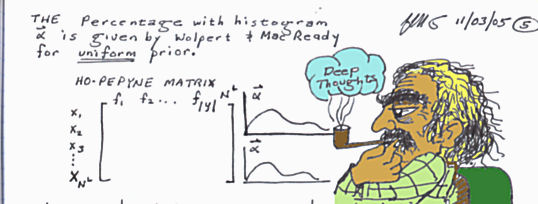 THE Percentage with histogram
α⃗ is given by Wolpert & MacReady
for uniform prior.
11/03/05 5
HO-PEPYNE MATRIX
f₁ f₂ ... f|y|^N^L
x₁
x₂
x₃
⋮
X_N^L
α⃗
α⃗
Deep
Thoughts